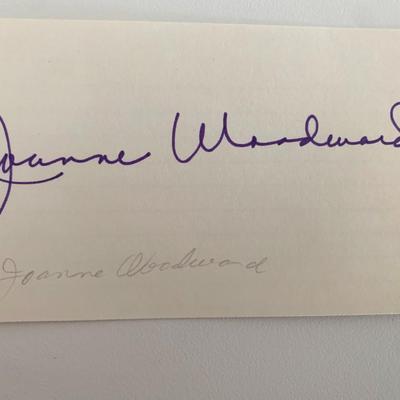 Joanne Woodward
Joanne Woodward